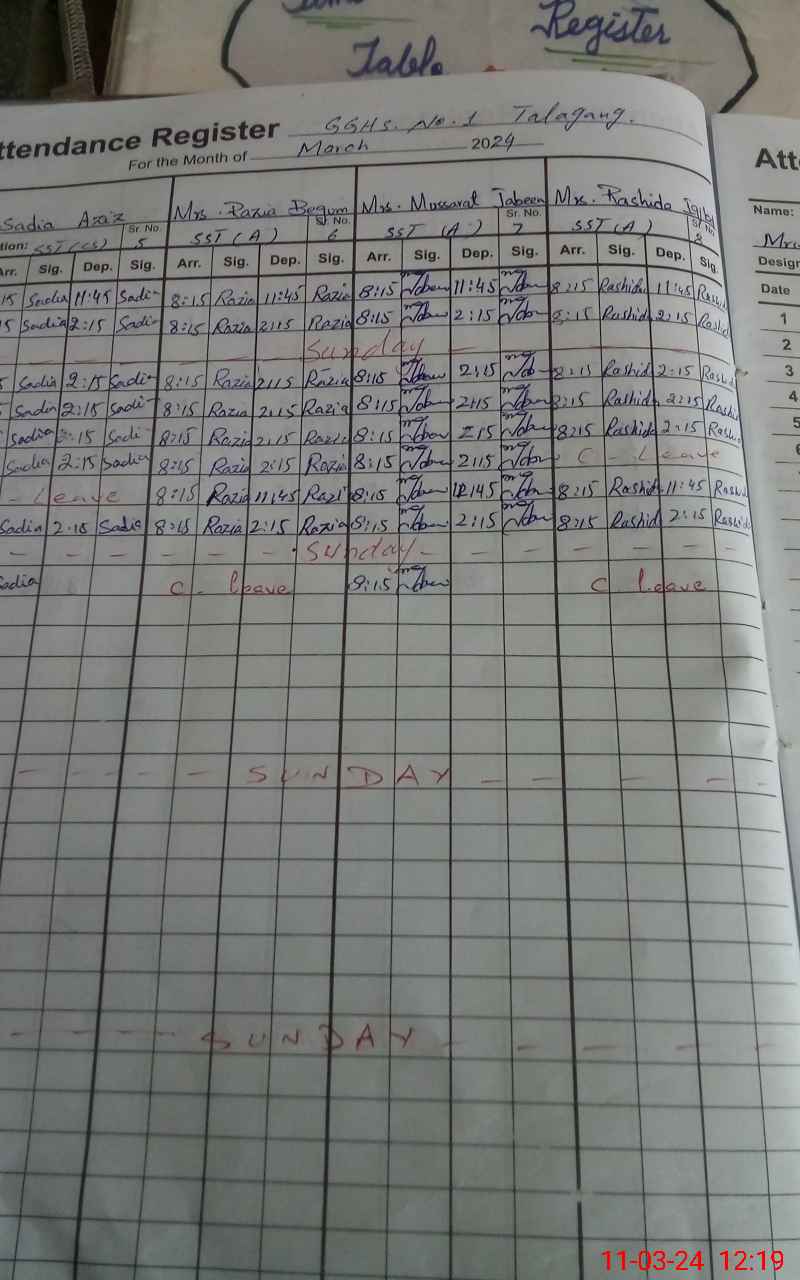 Table Register
ttendance Register GGHS. No. 1 Talagang.
For the Month of March 2024
Atte
Sadia Aziz Mrs. Razia Begum Mrs. Mussarat Jabeen Mrs. Rashida Iqbal
Name:
tion: SST (CS) Sr. No. 5 SST (A) Sr. No. 6 SST (A) Sr. No. 7 SST (A) Sr. No. 8
Mrs
Design
Arr. Sig. Dep. Sig. Arr. Sig. Dep. Sig. Arr. Sig. Dep. Sig. Arr. Sig. Dep. Sig.
Date
15 Sadia 11:45 Sadia 8:15 Razia 11:45 Razia 8:15 Jabeen 11:45 Jabeen 8:15 Rashida 11:45 Rashid
1
5 Sadia 2:15 Sadia 8:15 Razia 2:15 Razia 8:15 Jabeen 2:15 Jabeen 8:15 Rashid 2:15 Rashid
2
Sunday
3
Sadia 2:15 Sadia 8:15 Razia 2:15 Razia 8:15 Jabeen 2:15 Jabeen 8:15 Rashid 2:15 Rashid
4
Sadia 2:15 Sadi 8:15 Razia 2:15 Razia 8:15 Jabeen 2:15 Jabeen 8:15 Rashid 2:15 Rashid
5
Sadia 2:15 Sadi 8:15 Razia 2:15 Razia 8:15 Jabeen 2:15 Jabeen 8:15 Rashida 2:15 Rash
6
Sadia 2:15 Sadia 8:15 Razia 2:15 Razia 8:15 Jabeen 2:15 Jabeen C - Leave
- Leave 8:15 Razia 11:45 Razi 8:15 Jabeen 11:45 Jabeen 8:15 Rashid 11:45 Rash
Sadia 2:15 Sadia 8:15 Razia 2:15 Razia 8:15 Jabeen 2:15 Jabeen 8:15 Rashid 2:15 Rashid
- - - - - - Sunday - - - - - -
Sadia C - leave 8:15 Jabeen C leave
- - - - - SUNDAY - - - - -
- - - - SUNDAY - - - - -
11-03-24 12:19